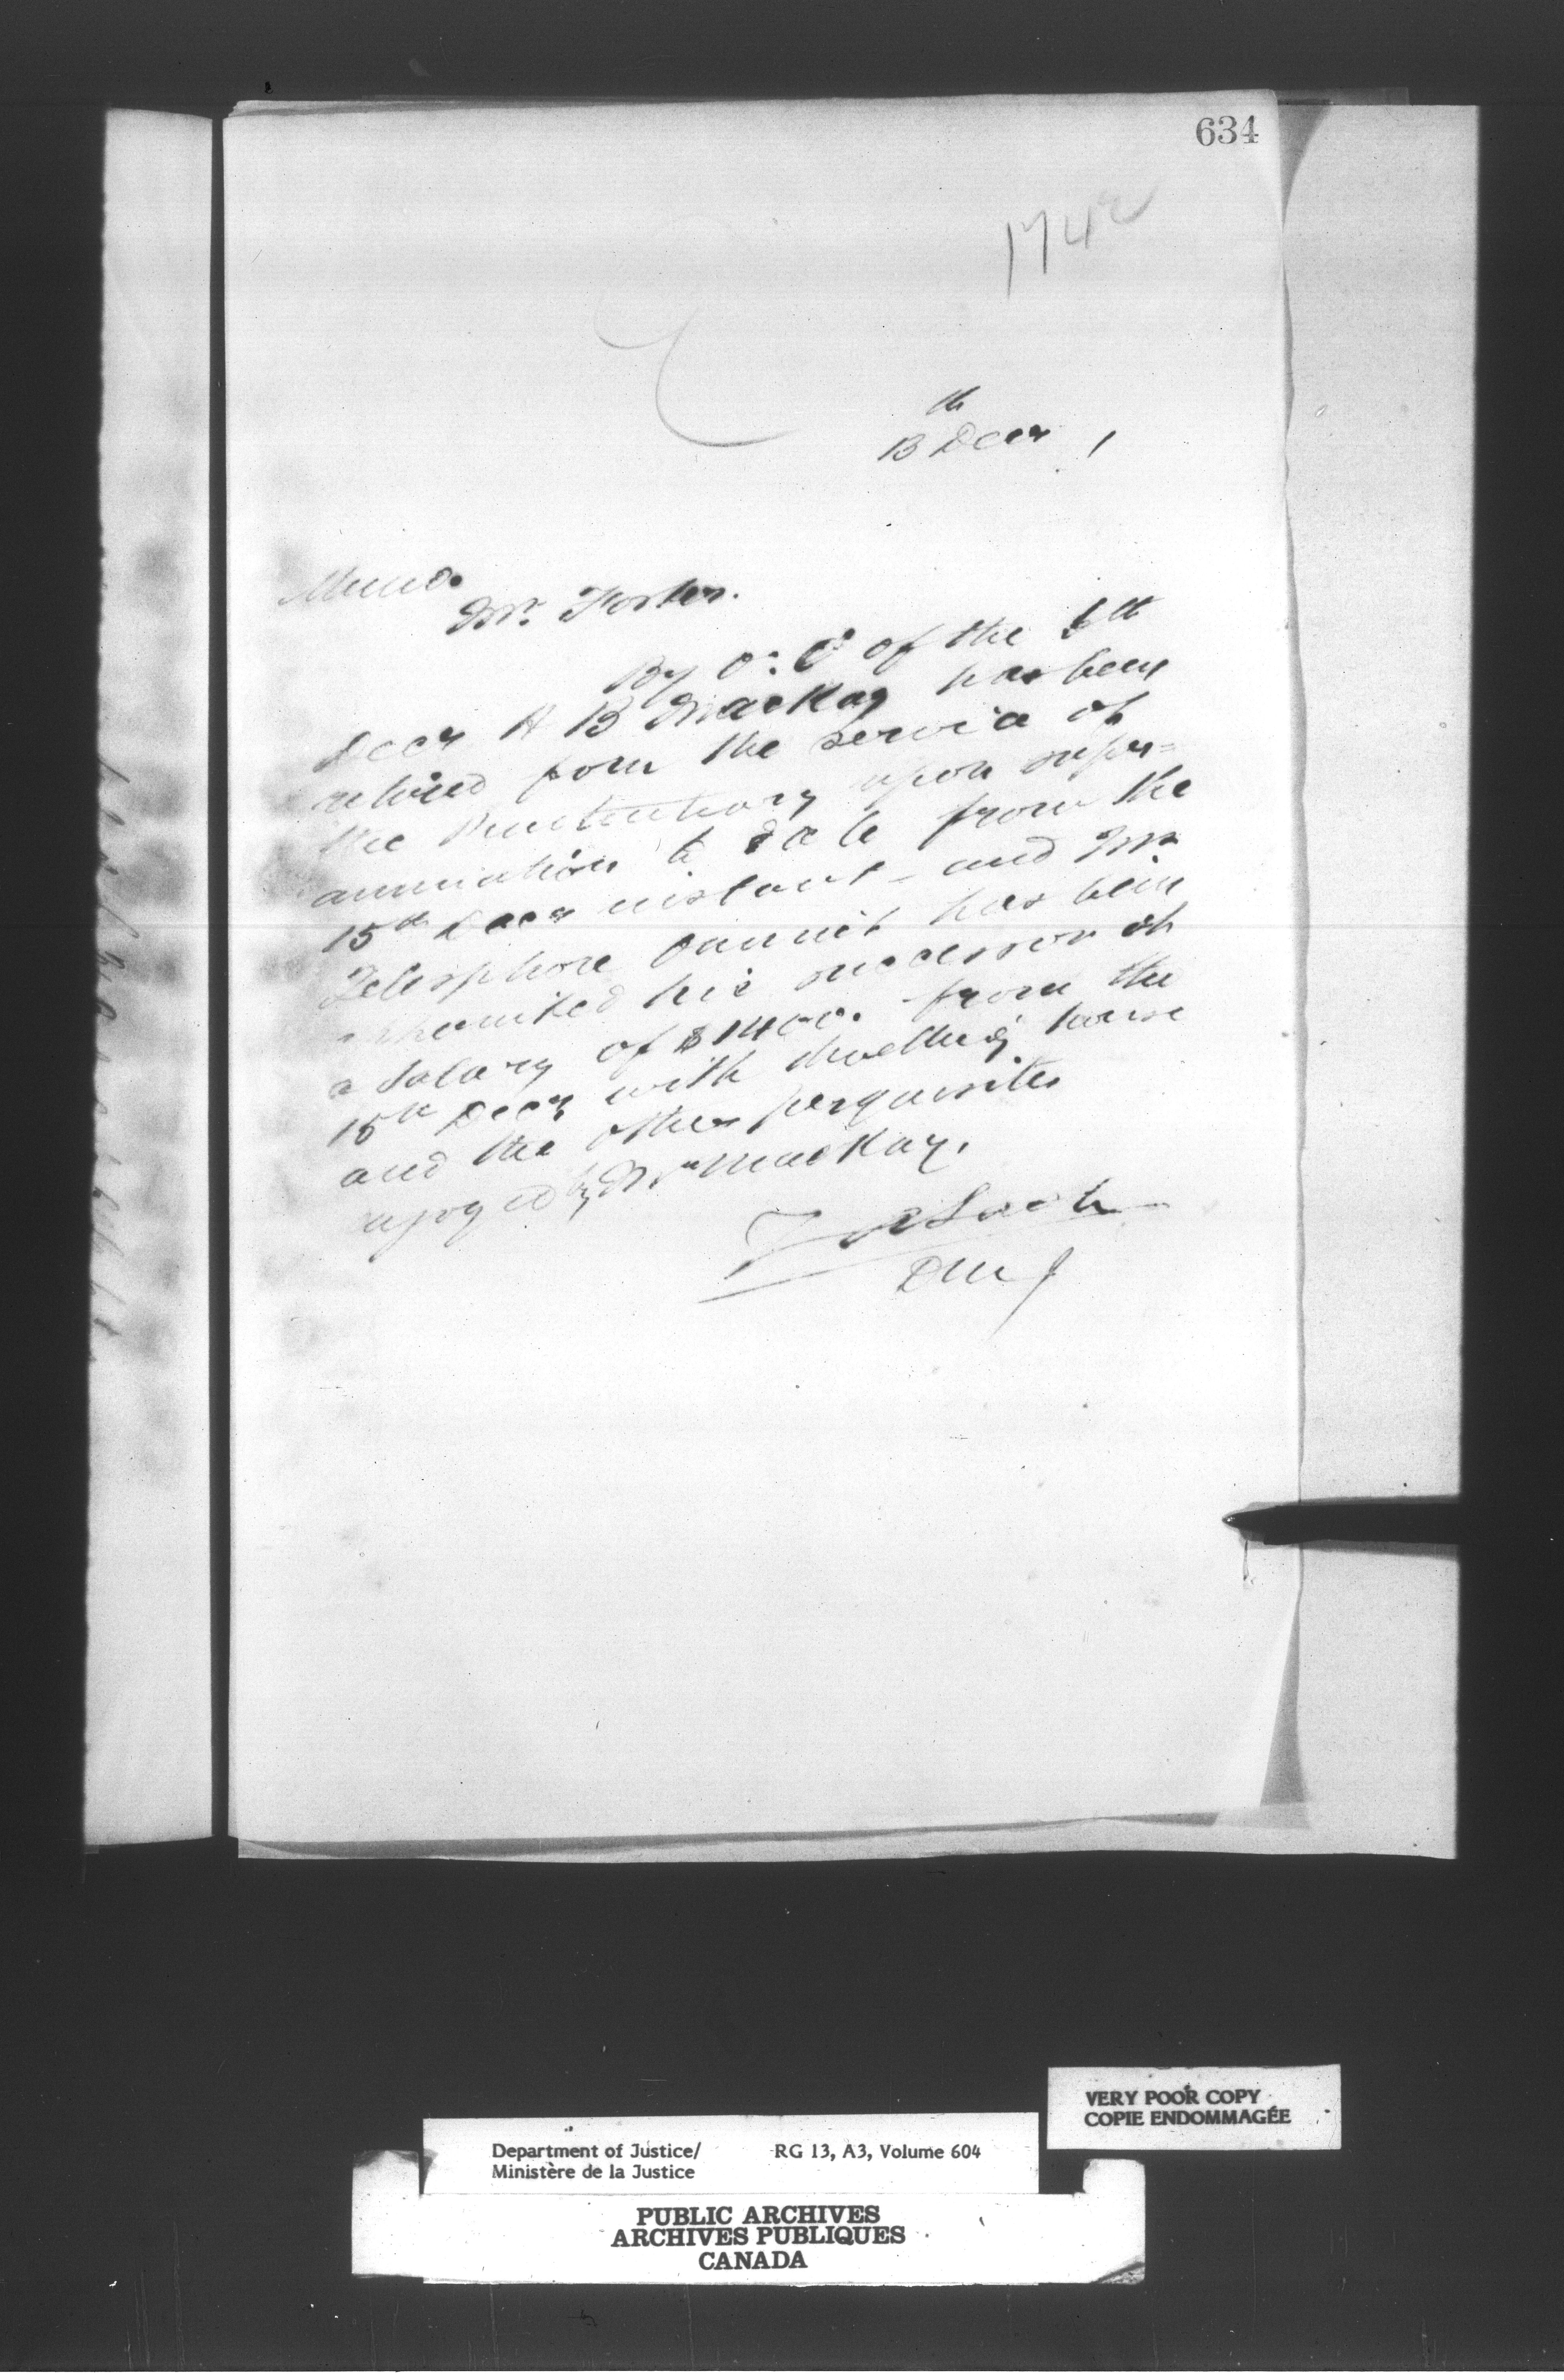 634
1742
th
13 Decr 1
Memo.
Mr. Foster.
By O. C of the 6th
Decr A B MacKay has been
retired from the service of
the Penitentiary upon super=
annuation to date from the
15th Decr instant - and Mr.
Telesphore Ouimet has been
appointed his successor at
a salary of $1400. from the
15th Decr with dwelling house
and the other perquisites
enjoyed by Mr MacKay.
Lash
DMJ
VERY POOR COPY
COPIE ENDOMMAGÉE
Department of Justice/ RG 13, A3, Volume 604
Ministère de la Justice
PUBLIC ARCHIVES
ARCHIVES PUBLIQUES
CANADA